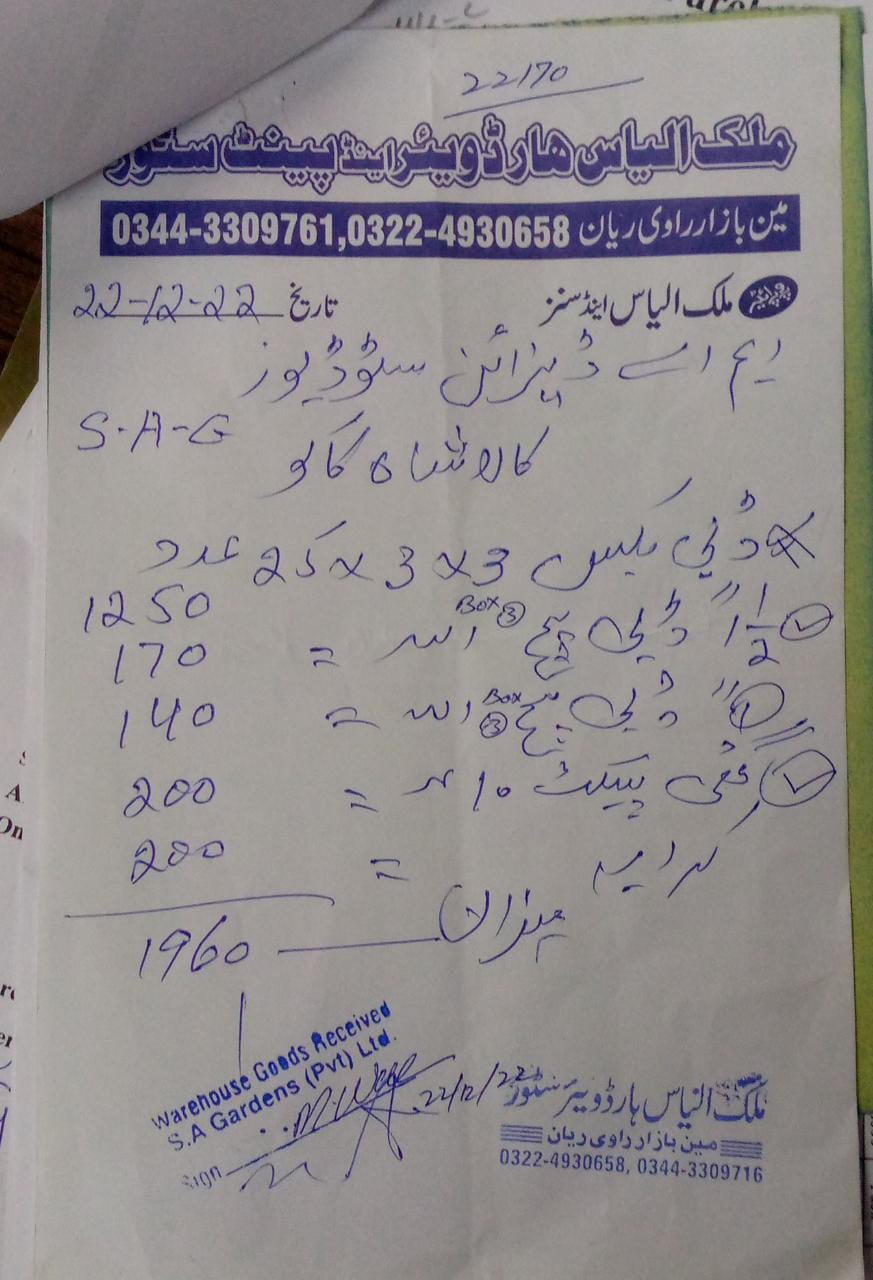 22170
ملک الیاس ھارڈویئر اینڈ پینٹ سٹور
مین بازار راوی ریان 0344-3309761,0322-4930658
پروپرائیٹر ملک الیاس اینڈ سنز تاریخ 22-12-22
ایم اے ڈیزائن سٹوڈیوز
کالا شاہ کاکو S-A-G
ڈبی بکس 3×3×25 عدد
1250
1½" ڈبی پیچ Box 3 = 170
1" ڈبی پیچ Box 3 = 140
پیکٹ 10 = 200
کرایہ = 200
میزان 1960
Warehouse Goods Received
S.A Gardens (Pvt) Ltd.
Sign
22/12/22
ملک الیاس ہارڈویئر سٹور
مین بازار راوی ریان
0322-4930658, 0344-3309716